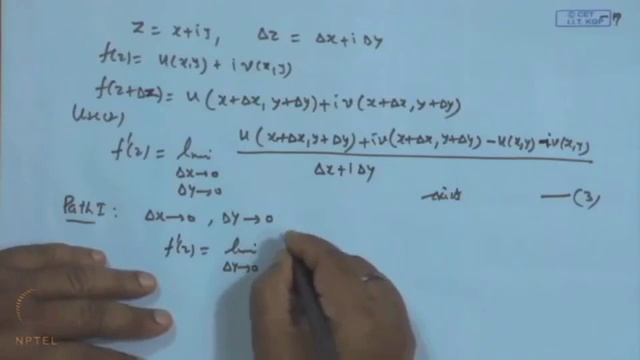 © CET
I.I.T. KGP
z = x+iy, Δz = Δx+iΔy
f(z) = u(x,y) + i v(x,y)
f(z+Δz) = u(x+Δx, y+Δy) + i v(x+Δx, y+Δy)
f'(z) = lim Δx→0 Δy→0 u(x+Δx, y+Δy) + iv(x+Δx, y+Δy) - u(x,y) - iv(x,y) / Δx+iΔy
exist —(3)
Path I: Δx→0, Δy→0
f'(z) = lim Δy→0
NPTEL